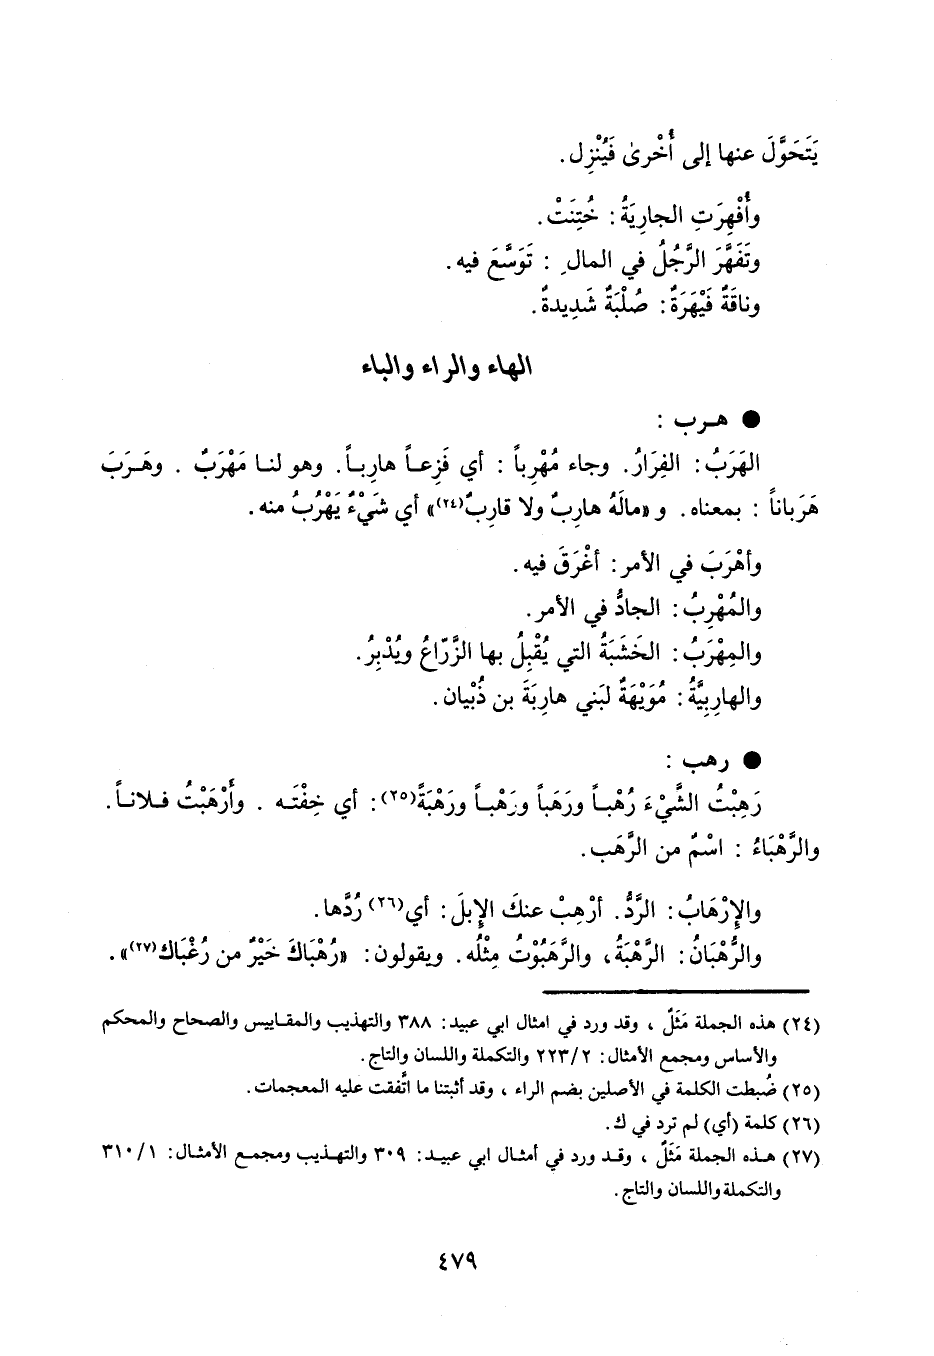 يَتَحَوَّلَ عنها إلى أُخْرىٰ فَيُنْزِل.
وأُفْهِرَتِ الجارِيَةُ: خُتِنَتْ.
وتَفَهَّرَ الرَّجُلُ في المالِ : تَوَسَّعَ فيه.
وناقَةٌ فَيْهَرَةٌ: صُلْبَةٌ شَدِيدةٌ.
الهاء والراء والباء
● هرب :
الهَرَبُ: الفِرَارُ. وجاء مُهْرِباً : أي فَزِعاً هارِباً. وهو لنا مَهْرَبٌ . وهَرَبَ
هَرَباناً : بمعناه. و «مالَهُ هارِبٌ ولا قارِبٌ(٢٤)» أي شَيْءٌ يَهْرُبُ منه.
وأهْرَبَ في الأمر: أغْرَقَ فيه.
والمُهْرِبُ: الجادُّ في الأمر.
والمِهْرَبُ: الخَشَبَةُ التي يُقْبِلُ بها الزَّرّاعُ ويُدْبِرُ.
والهارِبِيَّةُ: مُوَيْهَةٌ لبَني هارِبَةَ بن ذُبْيان.
● رهب :
رَهِبْتُ الشَّيْءَ رُهْباً ورَهَباً ورَهْباً ورَهْبَةً(٢٥): أي خِفْتَه . وأَرْهَبْتُ فلاناً.
والرَّهْبَاءُ : اسْمٌ من الرَّهَب.
والإِرْهَابُ: الرَّدُّ. أرْهِبْ عنكَ الإِبلَ: أي(٢٦) رُدَّها.
والرُّهْبَانُ: الرَّهْبَةُ، والرَّهَبُوْتُ مِثْلُه. ويقولون: «رُهْبَاكَ خَيْرٌ من رُغْبَاك(٢٧)».
(٢٤) هذه الجملة مَثَلٌ ، وقد ورد في امثال ابي عبيد: ٣٨٨ والتهذيب والمقاييس والصحاح والمحكم
والأساس ومجمع الأمثال: ٢٢٣/٢ والتكملة واللسان والتاج.
(٢٥) ضُبطت الكلمة في الأصلين بضم الراء ، وقد أثبتنا ما اتَّفقت عليه المعجمات.
(٢٦) كلمة (أي) لم ترد في ك.
(٢٧) هذه الجملة مَثَلٌ ، وقد ورد في أمثال ابي عبيد: ٣٠٩ والتهذيب ومجمع الأمثال: ٣١٠/١
والتكملة واللسان والتاج.
٤٧٩